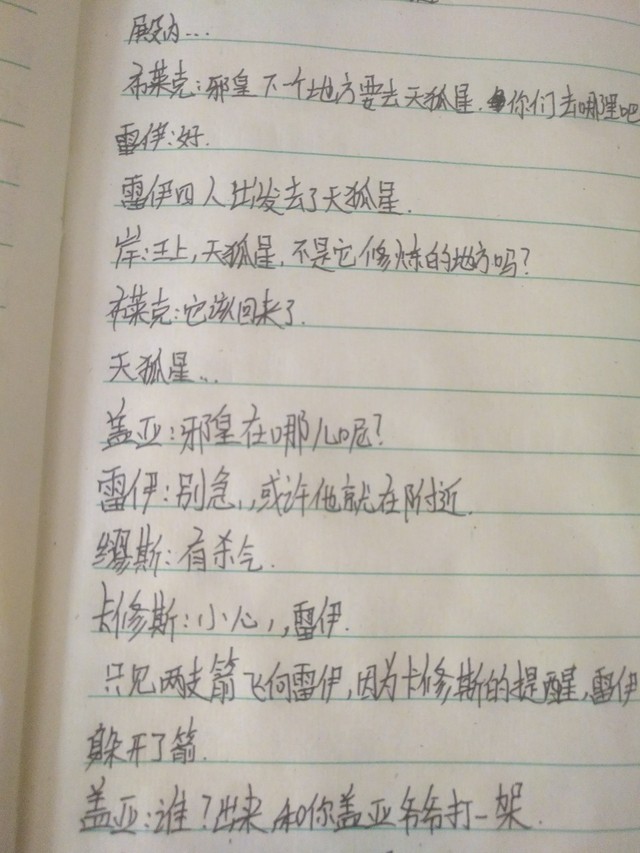 殿内…
布莱克:邪皇下一个地方要去天狐星.你们去哪里吧
雷伊:好.
雷伊四人出发去了天狐星.
岸:王上,天狐星,不是它修炼的地方吗?
布莱克:它该回来了.
天狐星…
盖亚:邪皇在哪儿呢?
雷伊:别急,,或许他就在附近.
缪斯:有杀气.
卡修斯:小心,,雷伊.
只见两支箭飞向雷伊,因为卡修斯的提醒,雷伊
躲开了箭.
盖亚:谁?出来,和你盖亚爷爷打一架.